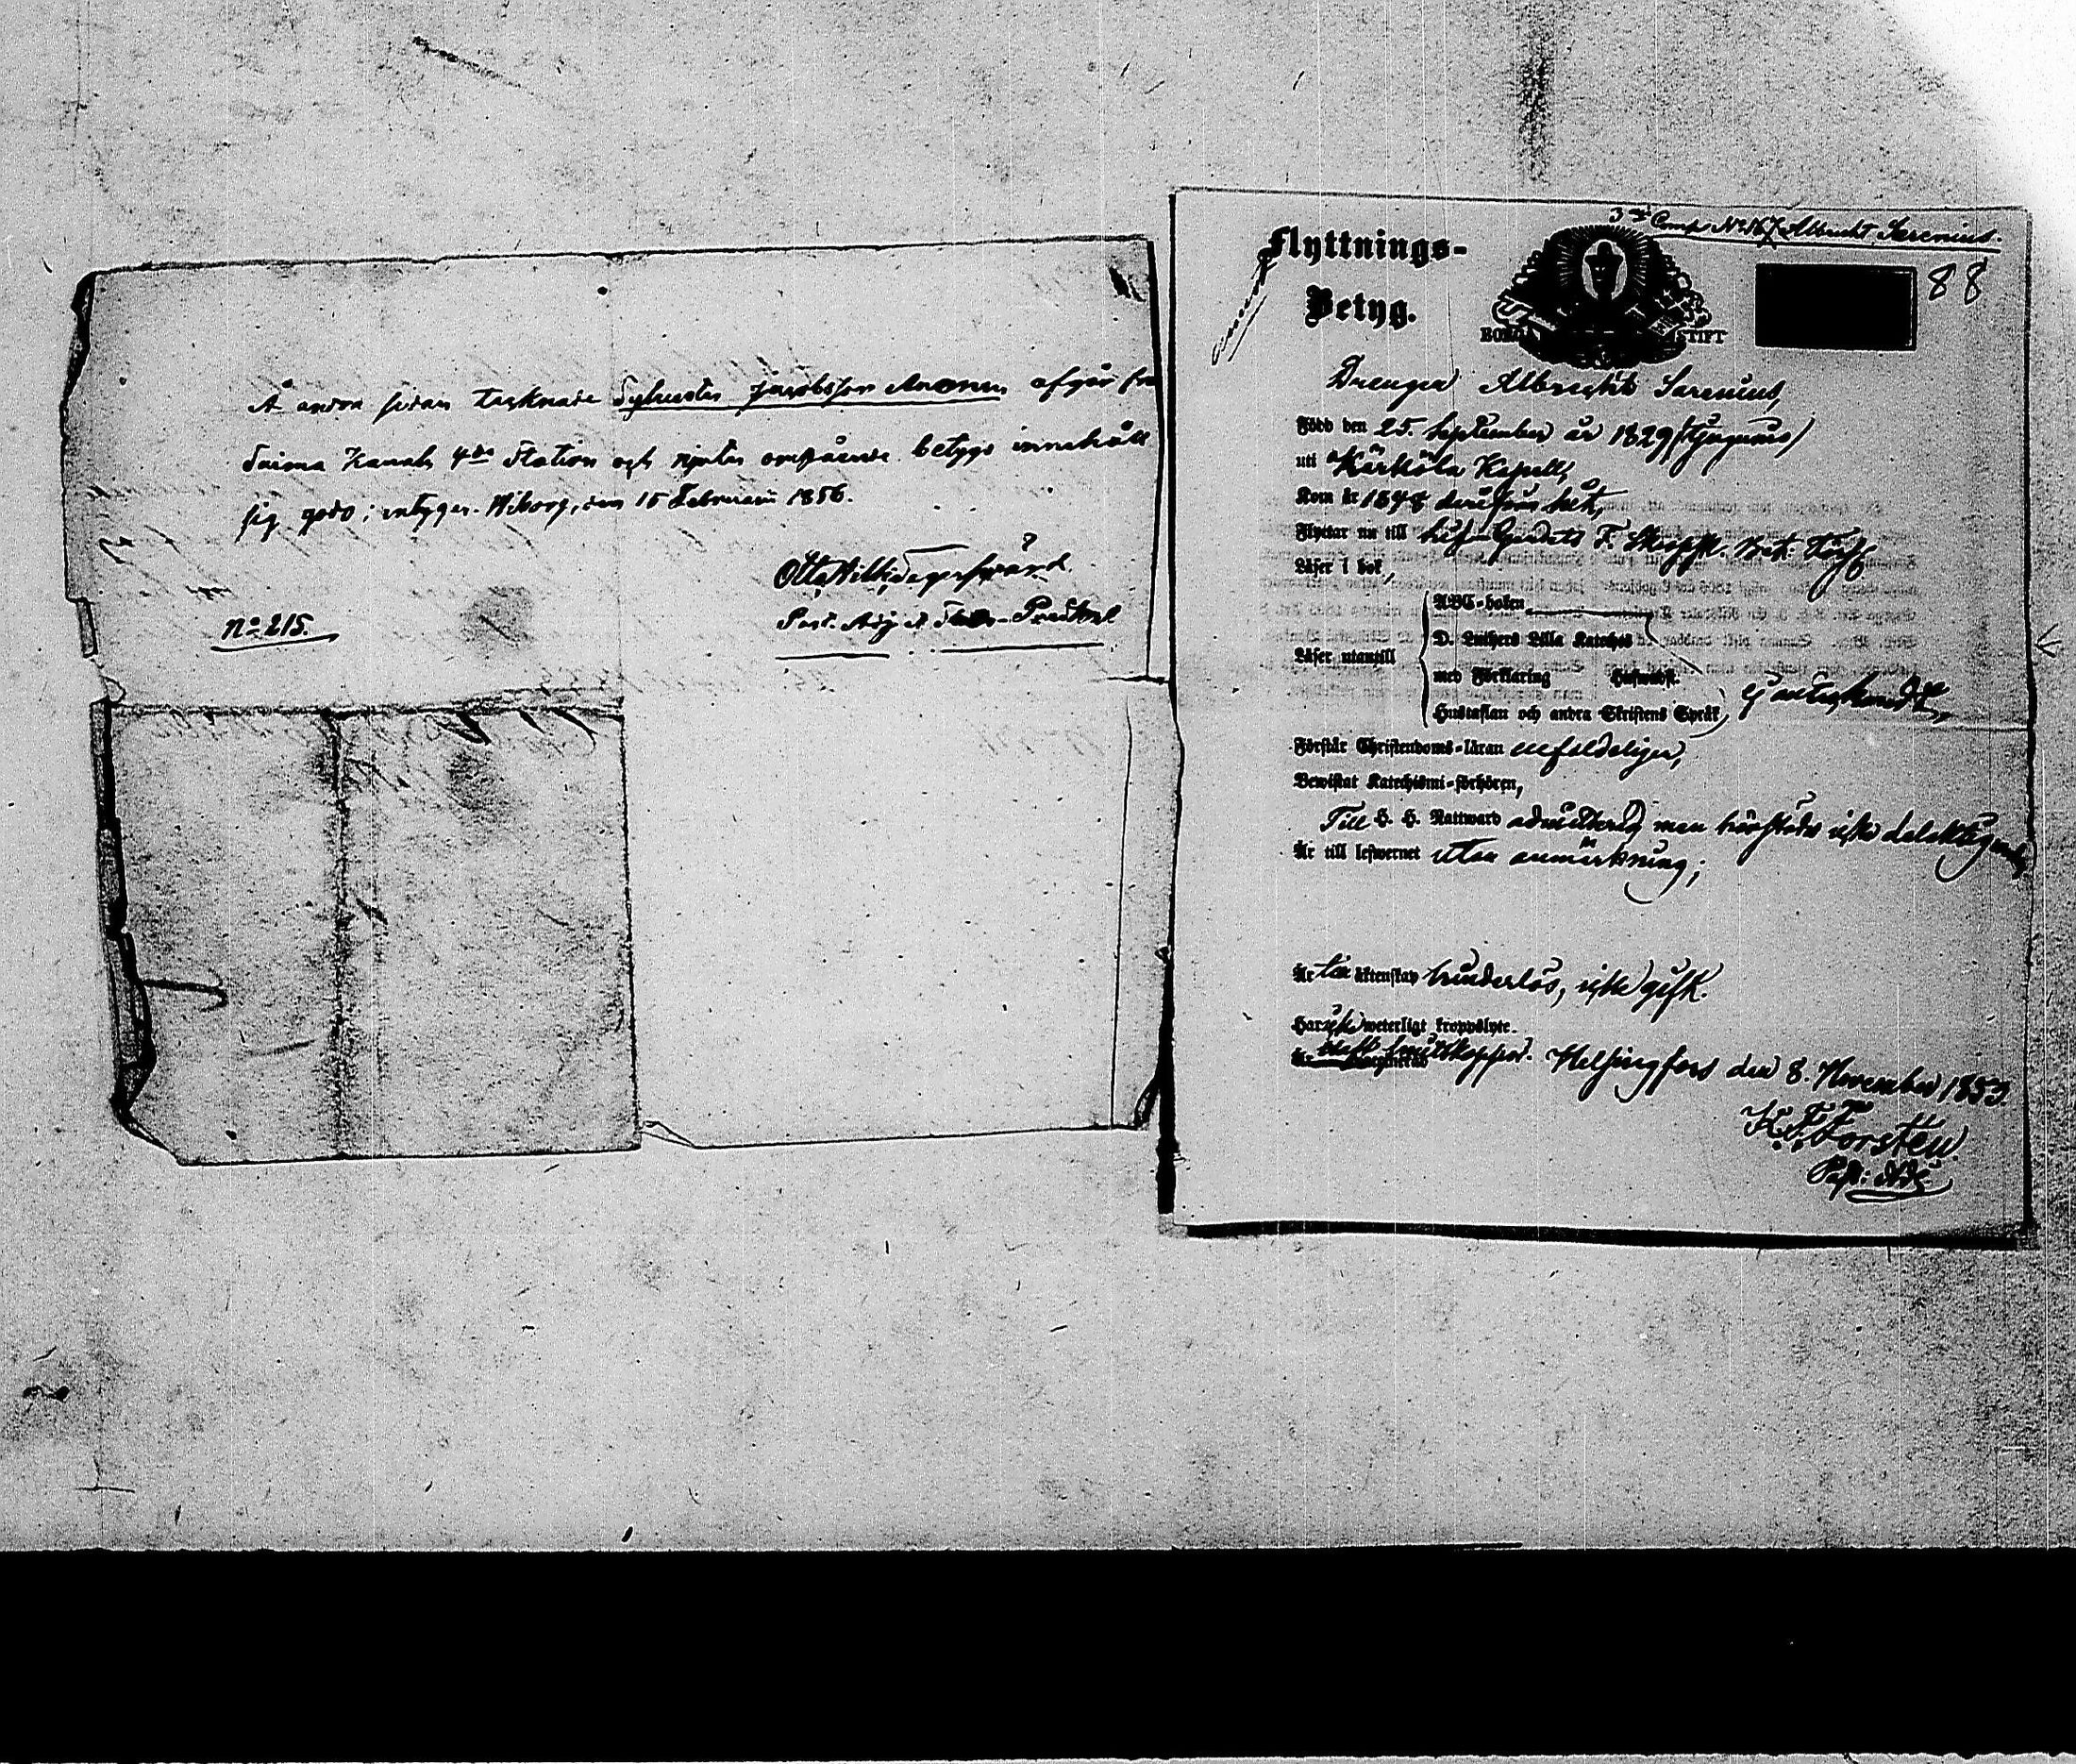 Å andra sidan tecknade Sylvester Jacobsson Anonen afgår frå
Saima Kanals 4de Station och njuter omstående betygs innehåll
sig godo; intygar. Wiborg, den 15 Februarii 1856.
Otto Wilh:
Past. Adj.
No 215.
3de Comp. No 167 Albrecht Sarenius.
Flyttnings-
Betyg.
BORGÅ STIFT
88
Drengen Albrecht Sarenius,
Född den 25. September år 1829 (tjugunio)
uti Kärkölä Kapell,
Kom år 1848 derifrån hit,
Flyttar nu till
Läser i bok,
ABC-boken
D. Luthers Lilla Katches
Läser utantill
med Förklaring Hufwudst.
Hustaflan och andra Skriftens Språk, ej antecknadt,
Förstår Christendoms-läran enfaldeligen,
Bewistat Katechismi-förhören,
Till H. H. Nattward admitterad men härstädes icke delaktig
Är till lefwernet utan anmärkning;
Är till äktenskap hinderlös, icke gift.
Har icke weterligt kroppslyte.
Är haft smittkoppor. Helsingfors den 8. November 1853.
K. F. Forstén
Past: Adj.